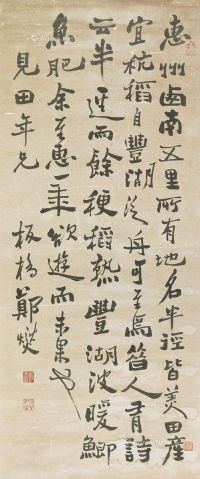 惠州西南五里所有地名半徑皆美田產
宜杭稻自豐湖泛舟可至焉昔人有詩
云半逕雨餘粳稻熟豐湖波暖鯽
魚肥余至惠一欲遊而未果也
見田年兄
板橋鄭燮